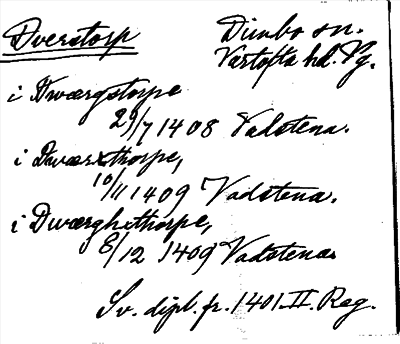 Dverstorp
Dimbo sn.
Vartofta hd. Vg.
i Dwærgstorpe
29/7 1408 Vadstena.
i Dwærxthorpe,
10/11 1409 Vadstena.
i Dwærghxthorpe,
8/12 1409 Vadstena.
Sv. dipl. fr. 1401. II. Reg.